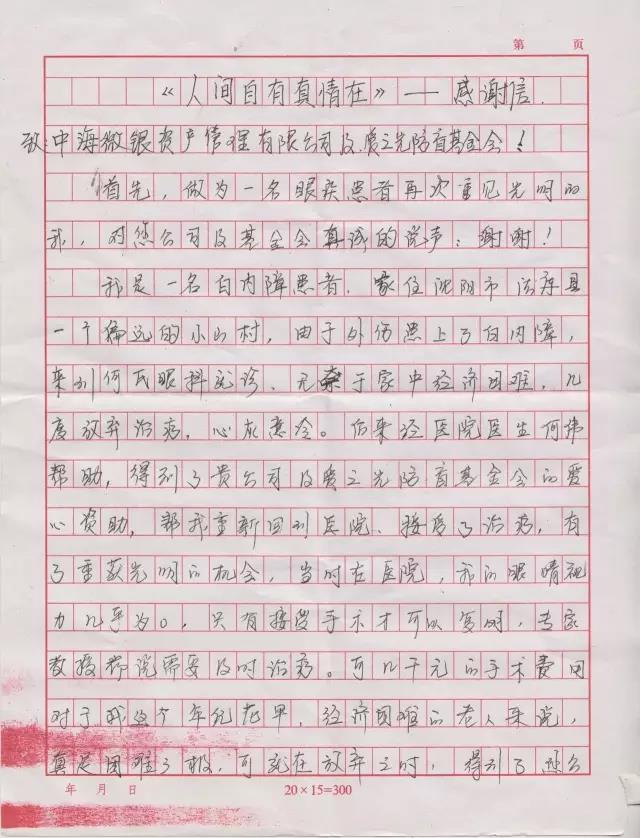 第 页
《人间自有真情在》——感谢信.
致:中海微银资产管理有限公司及爱之光防盲基金会!
首先,做为一名眼疾患者再次重见光明的
我,对您公司及基金会真诚的说声:谢谢!
我是一名白内障患者.家住沈阳市法库县
一个偏远的小山村,由于外伤患上了白内障,
来到何氏眼科就诊、无奈于家中经济困难,几
度放弃治疗,心灰意冷。后来经医院医生何伟
帮助,得到了贵公司及爱之光防盲基金会的爱
心资助,帮我重新回到医院、接受了治疗,有
了重获光明的机会,当时在医院,我的眼睛视
力几乎为0,只有接受手术才可以复明,专家
教授都说需要及时治疗。可几千元的手术费用
对于我这个年纪花甲、经济困难的老人来说,
真是困难了极,可就在放弃之时,得到了您公
年 月 日
20×15=300